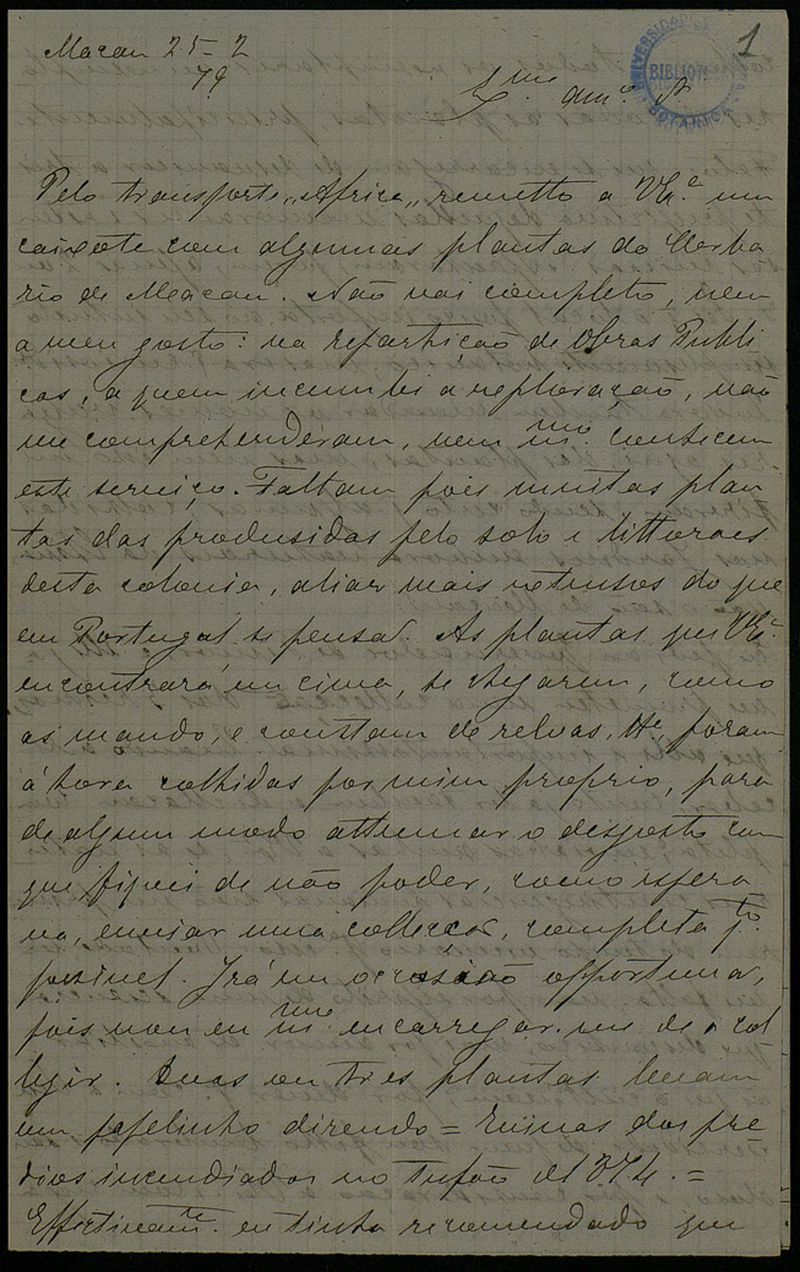 1
UNIVERSIDADE
BIBLIOT
BOTANICA
Macau 25-2
79
Ex.mo am.o Sr.
Pelo transporte "Africa" remetto a VEx.a um
caixote com algumas plantas do Herba
rio de Macau. Não vai completo, nem
a meu gosto: na repartição de Obras Publi-
cas, a quem incumbi a exploração, não
me comprehenderam, nem m.mo conhecem
este serviço. Faltam pois muitas plan
tas das produsidas pelo solo e littoraes
desta colonia, aliás mais extensos do que
em Portugal se pensa. As plantas que VEx.a
encontrará em cima, se chegarem, como
as mando, e constam de relvas, etc, foram
á hora colhidas por mim proprio, para
de algum modo attenuar o desgosto com
que fiquei de não poder, como espera
va, enviar uma collecção, completa q.to
possivel. Irá em occasião opportuna,
pois vou eu m.mo encarregar-me de a col
ligir. Duas ou tres plantas levam
um papelinho dizendo = Ruinas dos pre-
dios incendiados no tufão de 1874. =
Effectivam.te eu tinha recomendado que